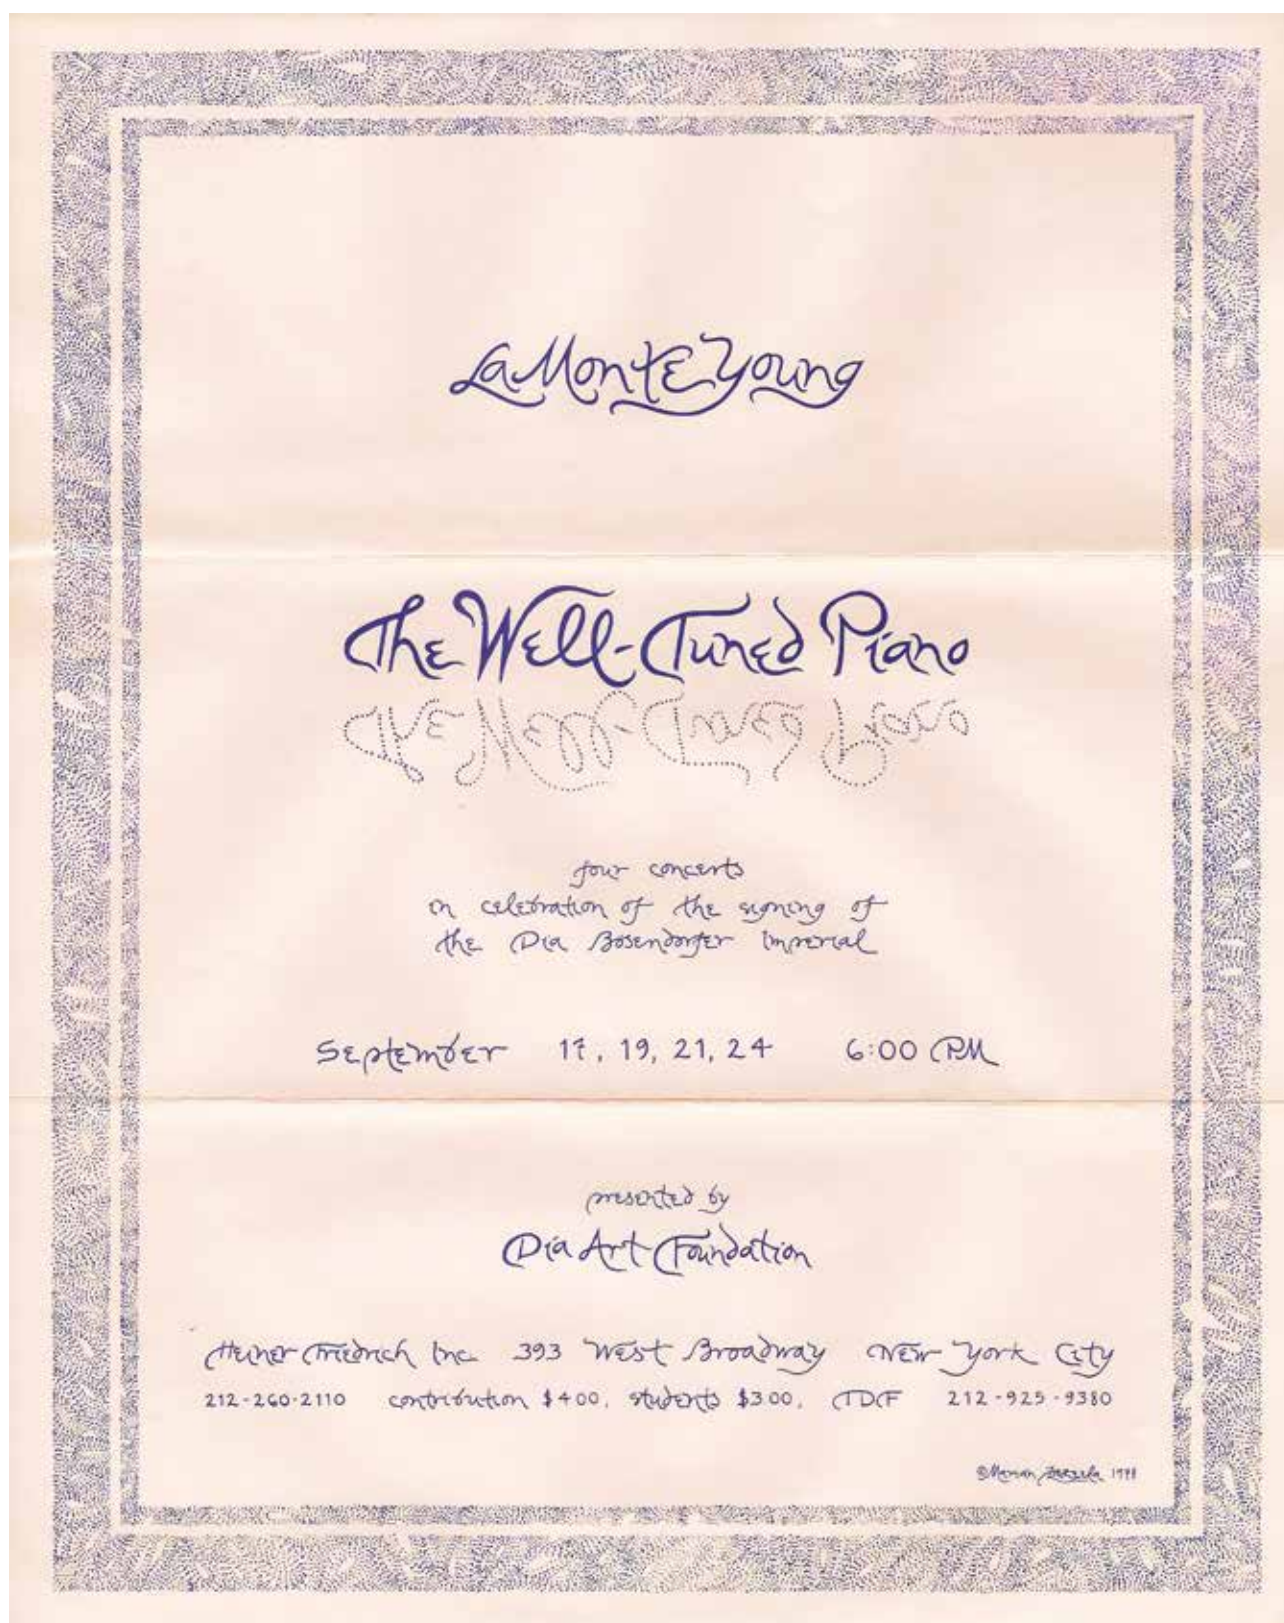 La Monte Young
The Well-Tuned Piano
The Well-Tuned Piano
four concerts
in celebration of the signing of
the Dia Bosendorfer Imperial
September 17, 19, 21, 24 6:00 PM
presented by
Dia Art Foundation
Heiner Friedrich Inc. 393 West Broadway New York City
212-260-2110 contribution $4.00, students $3.00, TDF 212-925-9380
© Marian Zazeela 1978